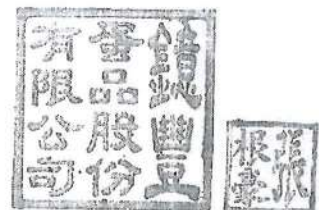 豐
蛋品股份
有限公司
張
根豪